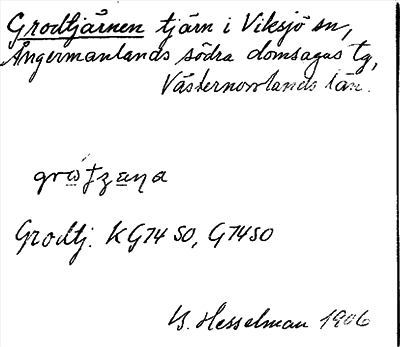 Grodtjärnen tjärn i Viksjö sn,
Ångermanlands södra domsagas tg,
Västernorrlands län.
Grodtj. KG74 SO, G74SO
B. Hesselman 1906